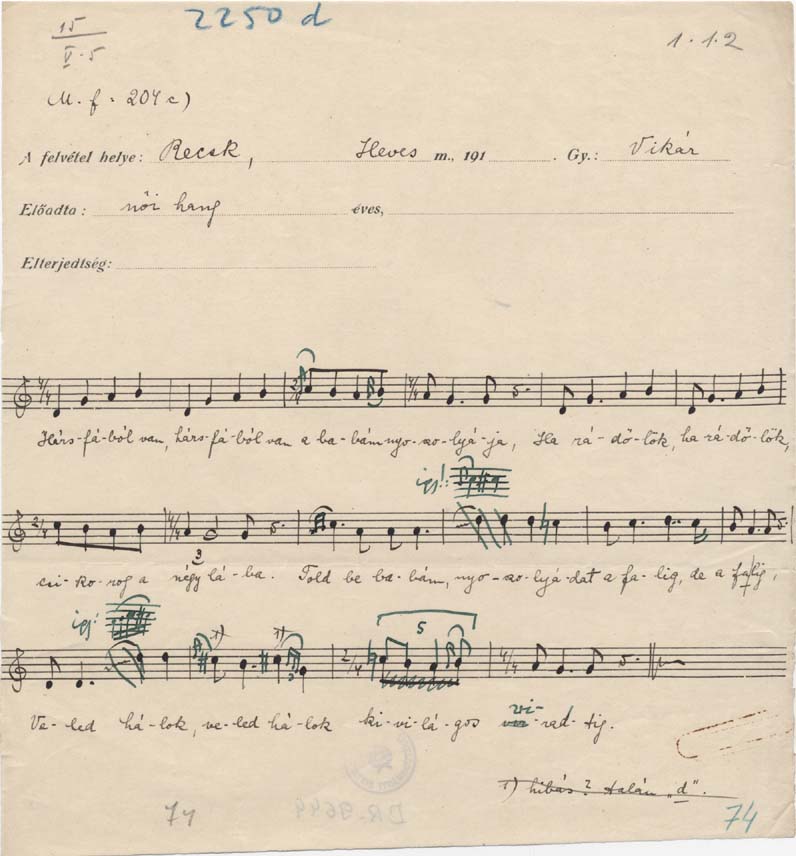 15 2250 d 1.1.2
V.5
M.f. 204 c)
A felvétel helye: Recsk, Heves m., 191 . Gy.: Vikár
Előadta: női hang éves,
Elterjedtség:
Hárs-fá-ból van, hárs-fá-ból van a ba-bám nyo-szo-lyá-ja, Ha rá-dő-lök, ha rá-dő-lök,
így!:
csi-ko-rog a négy lá-ba. Told be ba-bám, nyo-szo-lyá-dat a fa-lig, de a falig,
így!
1) 1) 5
Ve-led há-lok, ve-led há-lok ki-vi-lá-gos vi-rad-tig.
1) hibás? talán "d".
74 DR-9644 74